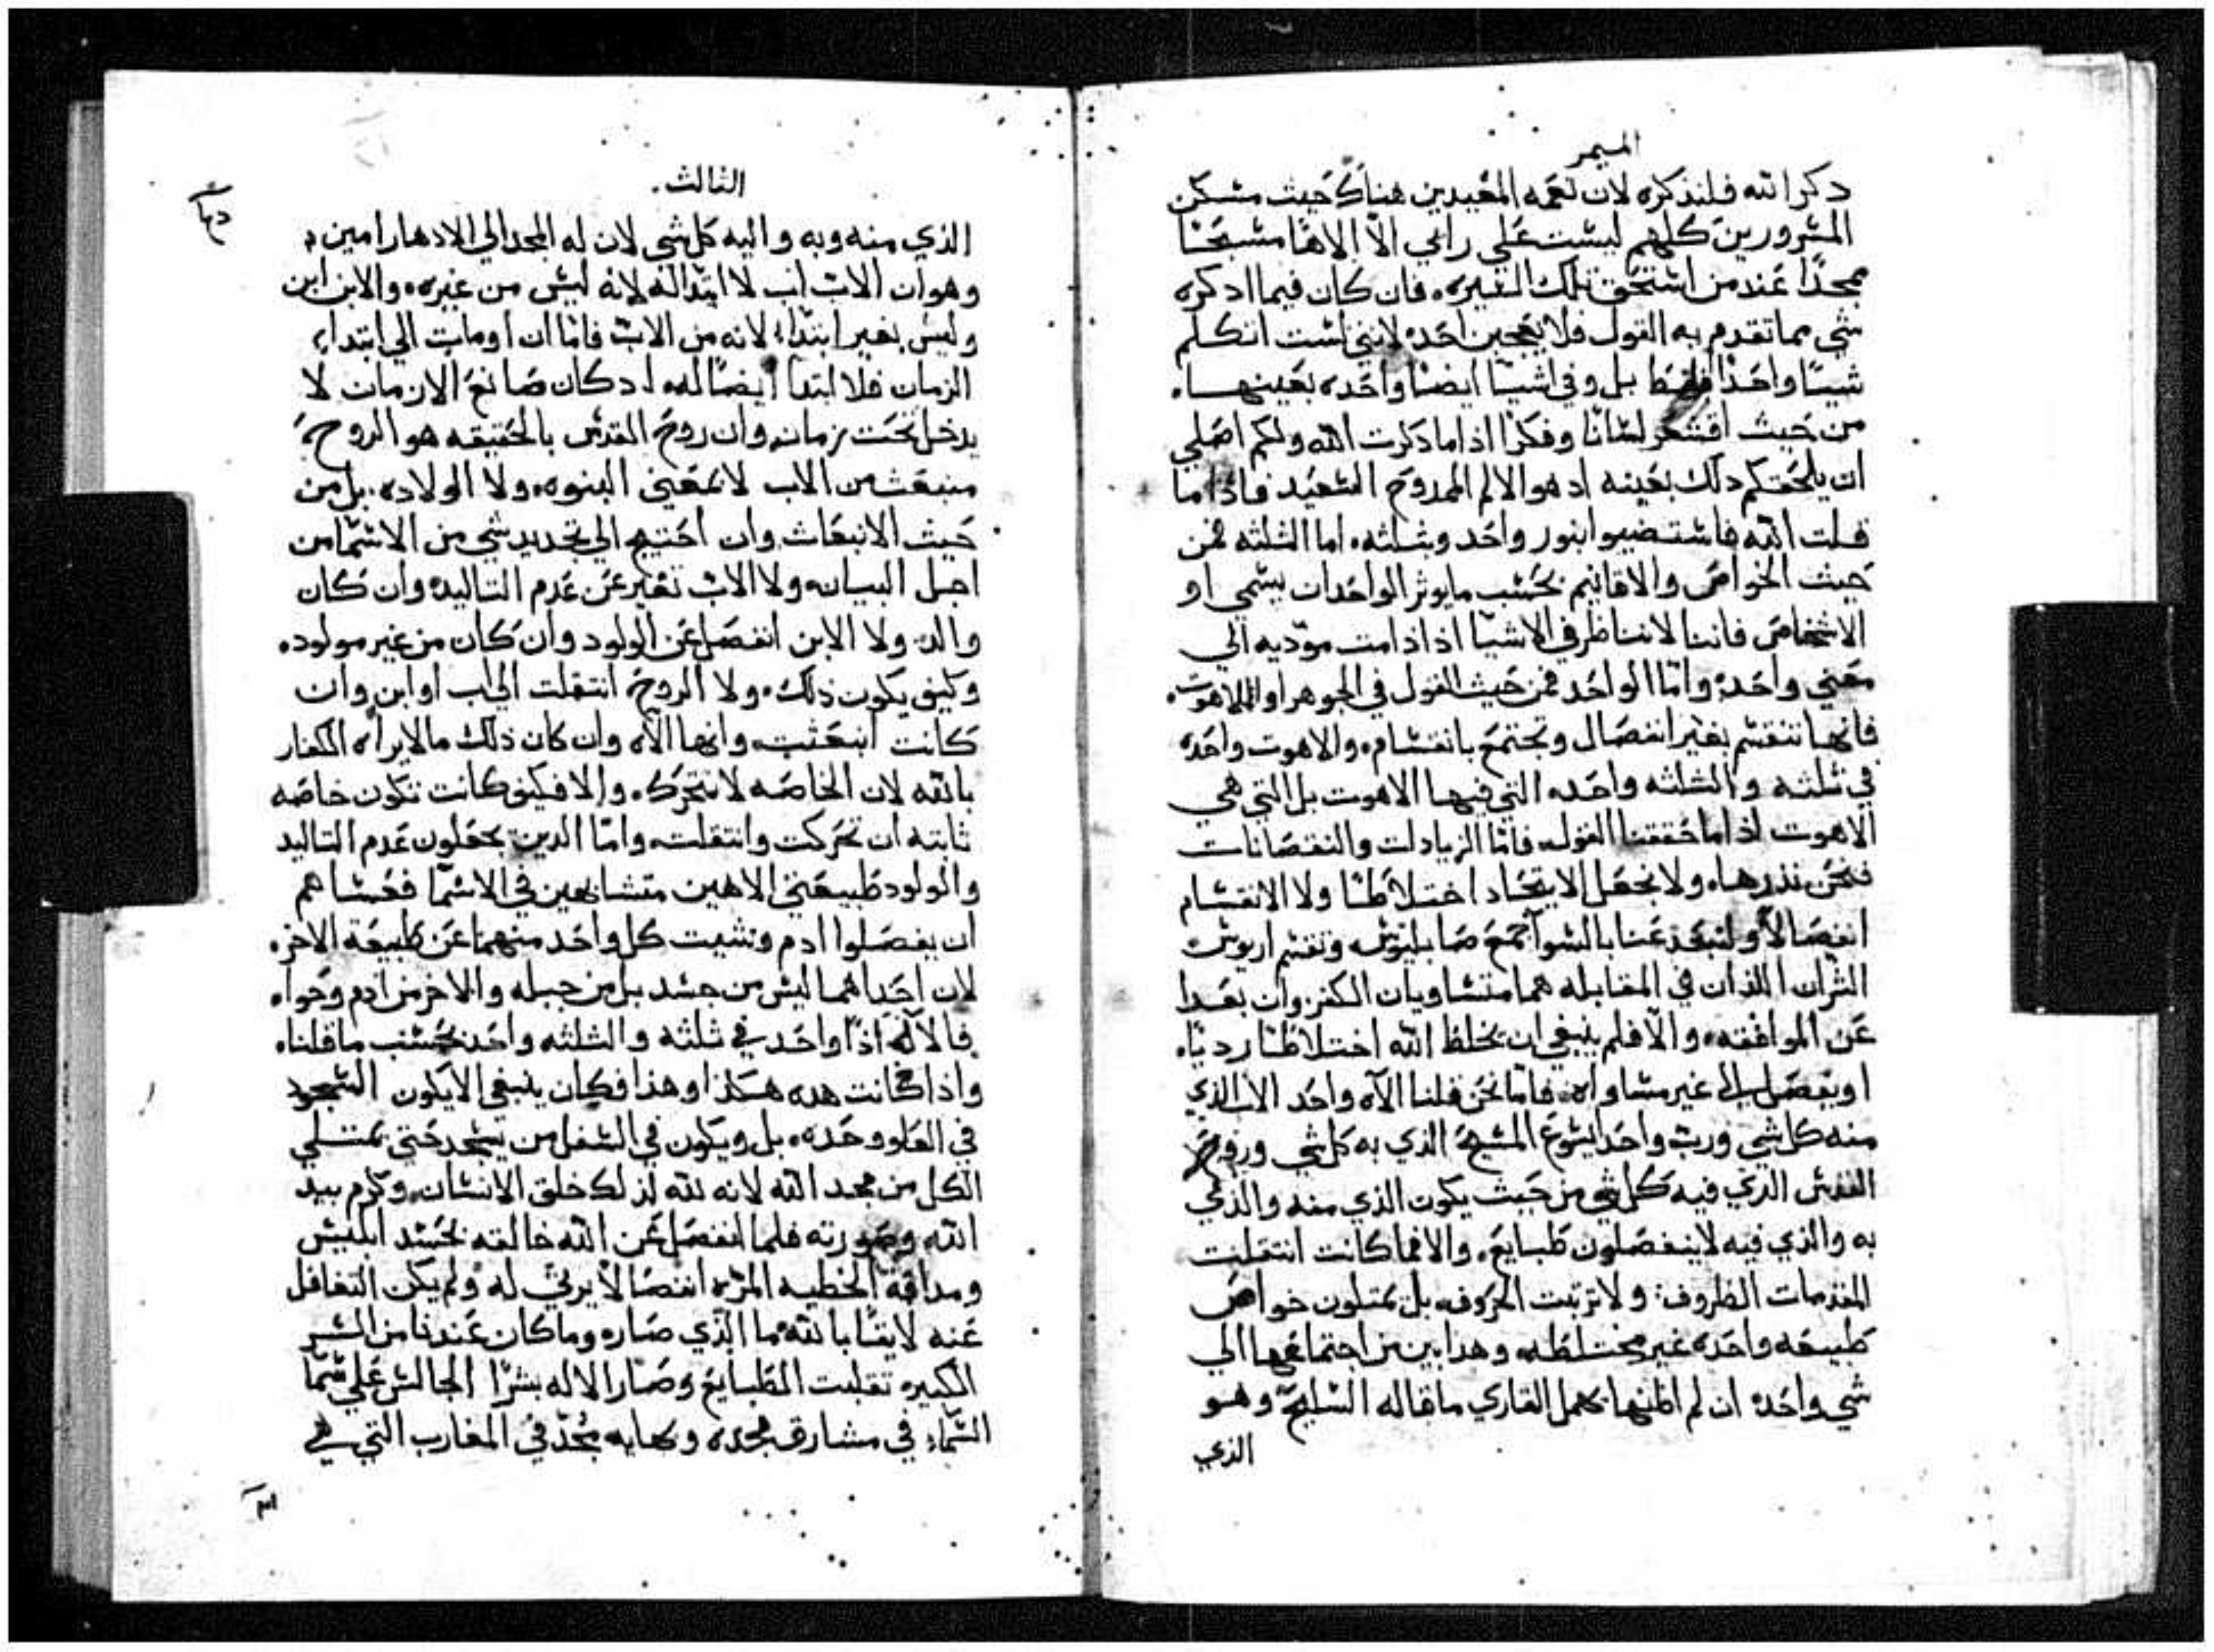 الميمر
ذكر الله فلنذكره لان نغمه المعيدين هناك حيث مسكن
المسرورين كلهم ليست علي رايي الا الاها مسبحا
ممجدا عند من استحق تلك السيره. فان كان فيما ادكره
شي مما تقدم به القول فلا يعجبن احد لانني لست اتكلم
شيا واحدا فقط بل وفي اشيا ايضا واحده بعينها.
من حيث اقشعر لسانا وفكرا اذا ما ذكرت الله ولكم اصلي
ان يلحقكم ذلك بعينه اد هو الالم الممدوح السعيد فاذا ما
قلت الله فاستضيوا بنور واحد وبثلثه. اما الثلثه فمن
حيث الخواص والاقانيم بحسب ما يوثر الواحد ان يسمي او
الاشخاص فاننا لا نناظر في الاسيا اذا دامت موديه الي
معني واحد واما الواحد فمن حيث القول في الجوهر او اللاهوت.
فانها تنقسم بغير انفصال وتجتمع بانقسام. والاهوت واحده
في ثلثه والثلثه واحده التي فيها الاهوت بل التي هي
الاهوت اذا ما حققنا القول. فاما الزيادات والنقصانات
فنحن نذرها. ولا نجعل الاتحاد اختلاطا ولا الانقسام
انفصالا ولتبعد عنا بالسوا جمع صابليوس وتقسم اريوس
الشران اللذان في المقابله هما متساويان الكفر وان بعدا
عن الموافقه. والا فلم ينبغي ان يخلط الله اختلاطا رديا.
او يفصل الي غير مساواه. فاما نحن فلنا الاه واحد الاب الذي
منه كل شي ورب واحد ايسوع المسيح الذي به كل شي وروح
القدس الذي فيه كل شي من حيث يكون الذي منه والذي
به والذي فيه لا ينفصلون طبايع. والا فما كانت انتقلت
المقدمات الظروف. ولا ترتبت الحروف. بل يمثلون خواص
طبيعه واحده غير مختلطه. وهدا بين من اجتماعها الي
شي واحد ان لم المنها بهمل القاري ما قاله السليح وهو
الذي
الثالث.
الذي منه وبه واليه كل شي لان له المجد الي الادهار امين.
وهو ان الاب اب لا ابتدا له لانه ليس من غيره. والابن ابن
وليس بغير ابتدا لانه من الاب فاما ان اومات الي ابتداء
الزمان فلا ابتدا ايضا له اد كان صانع الازمان لا
يدخل تحت زمان. وان روح القدس بالحقيقه هو الروح
منبعث من الاب لا بمعني البنوه. ولا الولاده. بل من
حيث الانبعاث وان احتيج الي تجديد شي من الاسما من
اجل البيان. ولا الاب تغير عن عدم التاليد وان كان
والد. ولا الابن انفصل عن الولود وان كان من غير مولود.
وكيف يكون ذلك. ولا الروح انتقلت الي اب او ابن وان
كانت انبعثت. وانها الاه وان كان ذلك ما لا يراه الكفار
بالله لان الخاصه لا تتحرك. والا فكيف كانت تكون خاصه
ثابته ان تحركت وانتقلت. واما الدين يجعلون عدم التاليد
والولود طبيعتي الاهين متشابهين في الاسما فعساهم
ان يفصلوا ادم وشيت كل واحد منهما عن طبيعة الاخر.
لان احداهما ليس من جسد بل من جبله والاخر من ادم وحوا.
فالاله اذا واحد في ثلثه والثلثه واحد بحسب ما قلنا.
واذا كانت هده هكذا وهذا فكان ينبغي الا يكون السجود
في العلو وحده. بل ويكون في السفل من يسجد حتي يمتلي
الكل من مجد الله لانه لله لذلك خلق الانسان. وكرم بيد
الله وصورته فلما انفصل عن الله خالقه بحسد ابليس
ومداقة الخطيه المره انفصالا يرثي له ولم يكن التغافل
عنه لايقا بالله ما الذي صار. وما كان عندنا من السر
الكبير. تقلبت الطبايع وصار الاله بشرا الجالس علي سما
السماء في مشارق مجده وبهايه مجد في المغارب التي هي